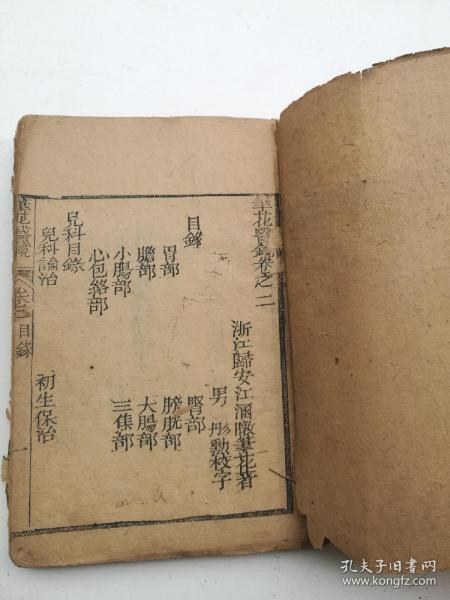 筆花醫鏡卷之二
浙江歸安江涵暾筆花著
男 彤勲校字
目錄
胃部 腎部
膽部 膀胱部
小腸部 大腸部
心包絡部 三焦部
兒科目錄
兒科論治 初生保治
筆花醫鏡 卷二 目錄 一
孔夫子旧书网
www.kongfz.com